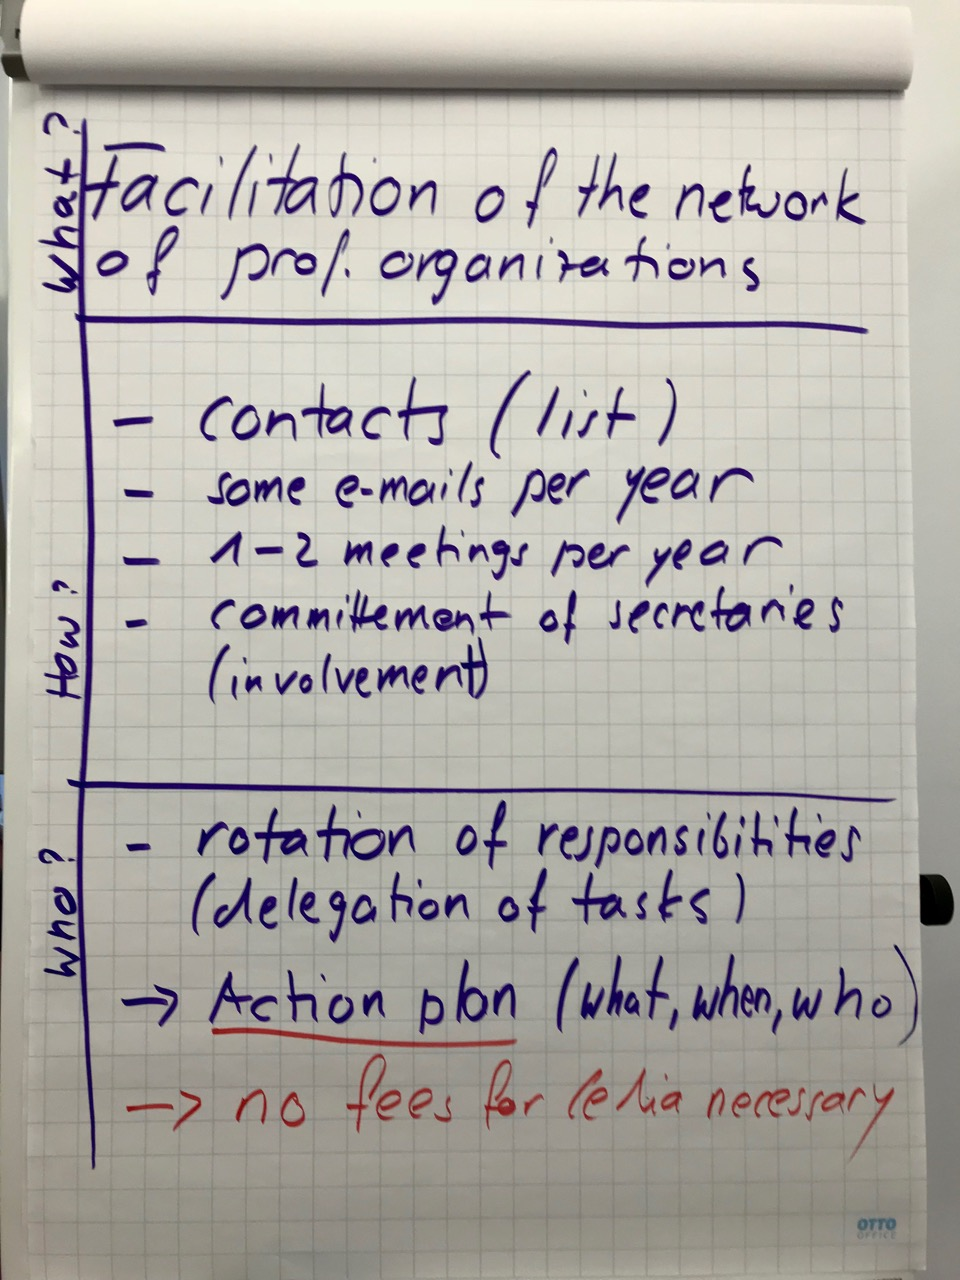 What?
Facilitation of the network
of prof. organizations
How?
- contacts (list)
- some e-mails per year
- 1-2 meetings per year
- committement of secretaries
(involvement)
Who?
- rotation of responsibilities
(delegation of tasks)
→ Action plan (what, when, who)
→ no fees for necessary
OTTO
OFFICE